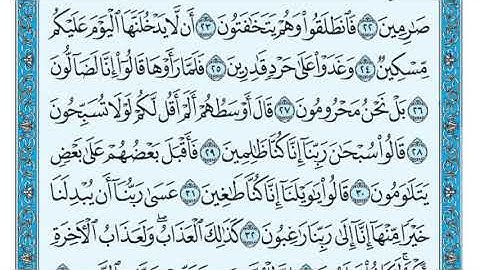 صَٰرِمِينَ ٢٢ فَٱنطَلَقُوا۟ وَهُمْ يَتَخَٰفَتُونَ ٢٣ أَن لَّا يَدْخُلَنَّهَا ٱلْيَوْمَ عَلَيْكُم
مِّسْكِينٌ ٢٤ وَغَدَوْا۟ عَلَىٰ حَرْدٍ قَٰدِرِينَ ٢٥ فَلَمَّا رَأَوْهَا قَالُوٓا۟ إِنَّا لَضَآلُّونَ
٢٦ بَلْ نَحْنُ مَحْرُومُونَ ٢٧ قَالَ أَوْسَطُهُمْ أَلَمْ أَقُل لَّكُمْ لَوْلَا تُسَبِّحُونَ
٢٨ قَالُوا۟ سُبْحَٰنَ رَبِّنَآ إِنَّا كُنَّا ظَٰلِمِينَ ٢٩ فَأَقْبَلَ بَعْضُهُمْ عَلَىٰ بَعْضٍ
يَتَلَٰوَمُونَ ٣٠ قَالُوا۟ يَٰوَيْلَنَآ إِنَّا كُنَّا طَٰغِينَ ٣١ عَسَىٰ رَبُّنَآ أَن يُبْدِلَنَا
خَيْرًا مِّنْهَآ إِنَّآ إِلَىٰ رَبِّنَا رَٰغِبُونَ ٣٢ كَذَٰلِكَ ٱلْعَذَابُ ۖ وَلَعَذَابُ ٱلْءَاخِرَةِ